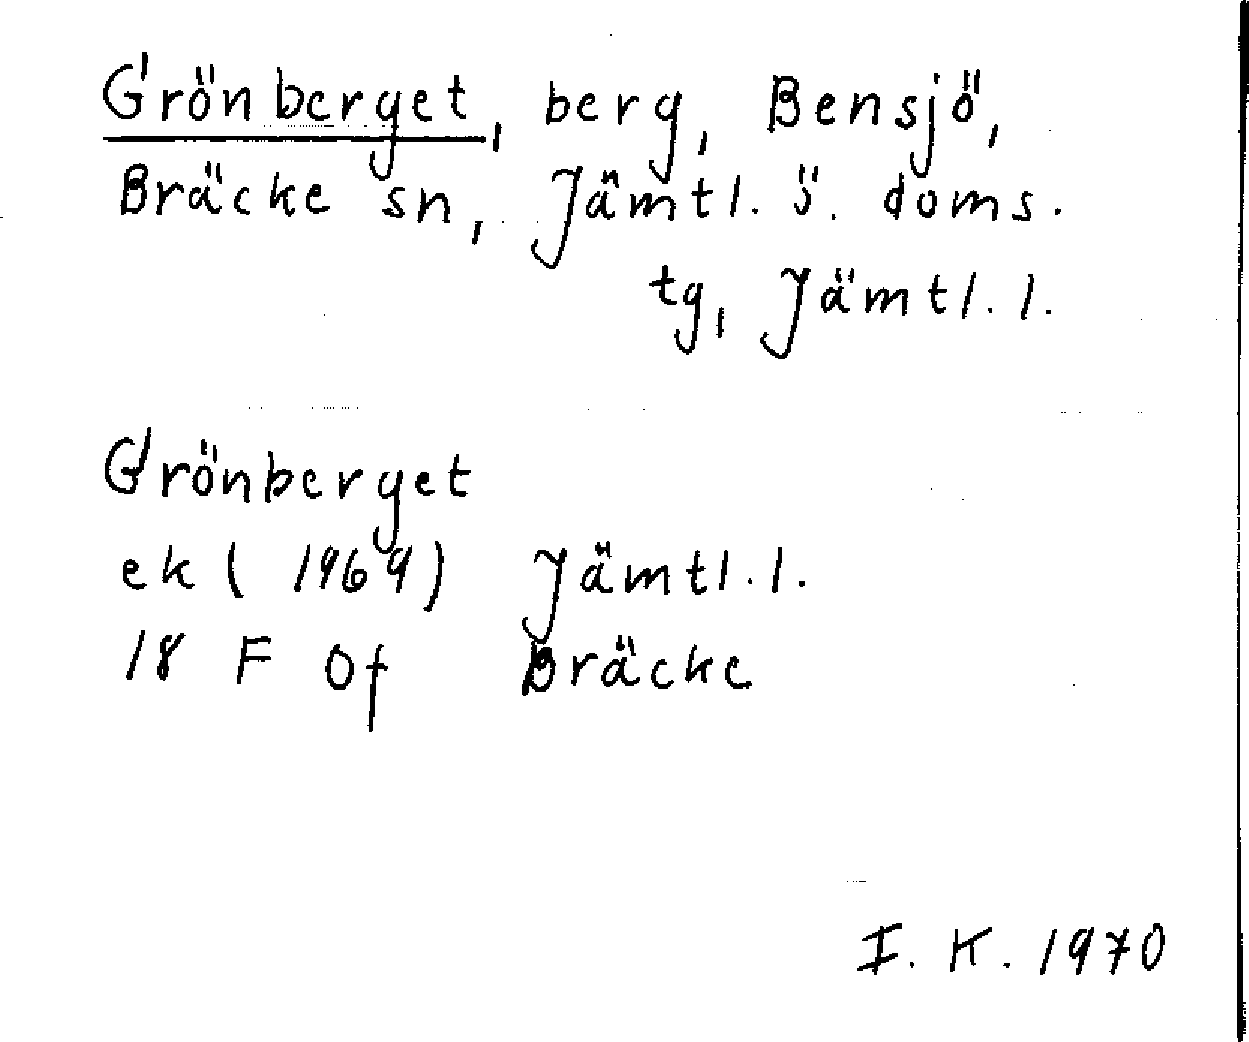 Grönberget, berg, Bensjö,
Bräcke sn, Jämtl. ö. doms.
tg, Jämtl. l.
Grönberget
ek (1969) Jämtl. l.
18 F Of Bräcke
I. K. 1970